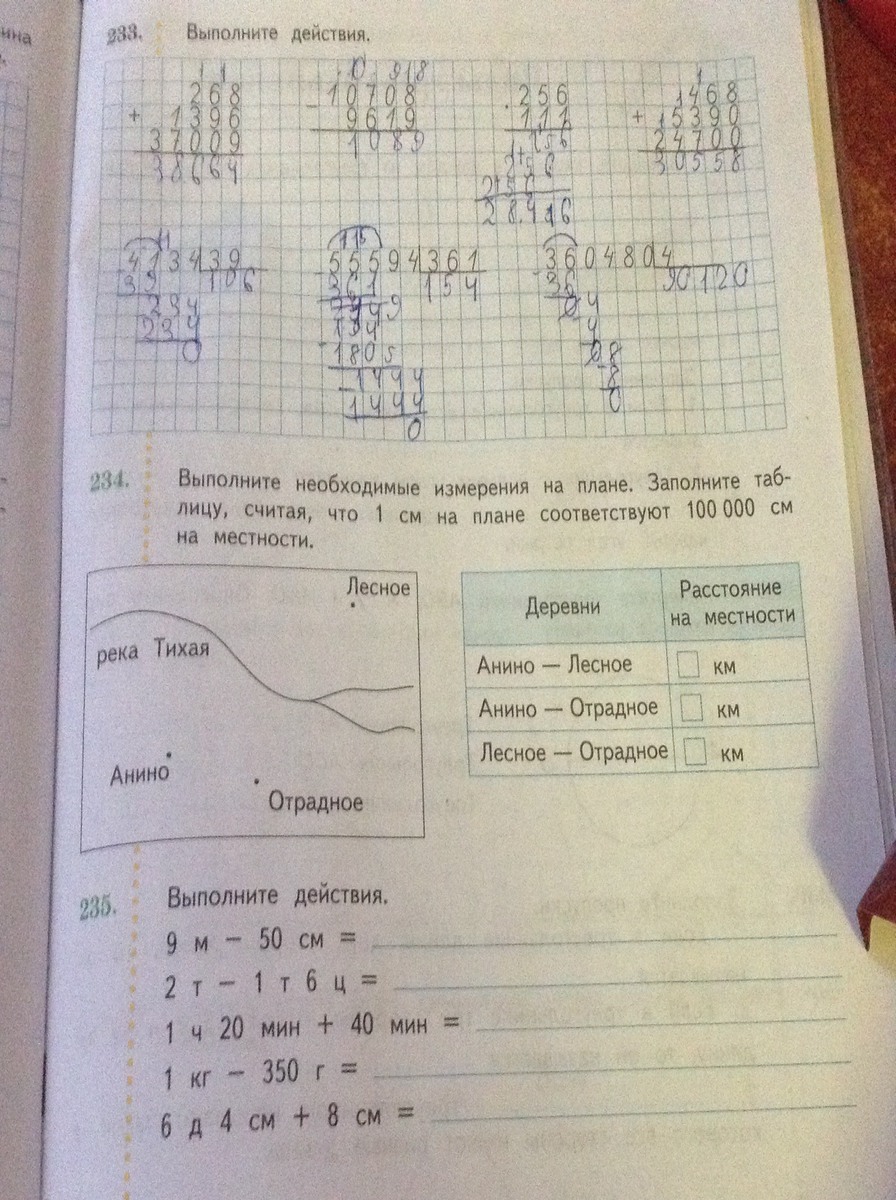 ина
233. Выполните действия.
268
+ 1396
37009
38664
10708
- 9619
1089
256
111
256
256
256
28416
1468
+ 15390
24700
30558
4134 39
39 106
234
234
0
55594 361
361 154
1805
1444
1444
0
360480 4
36 90120
04
4
08
8
0
234. Выполните необходимые измерения на плане. Заполните таб-
лицу, считая, что 1 см на плане соответствуют 100 000 см
на местности.
Лесное
река Тихая
Анино
Отрадное
Деревни Расстояние на местности
Анино — Лесное □ км
Анино — Отрадное □ км
Лесное — Отрадное □ км
235. Выполните действия.
9 м − 50 см =
2 т − 1 т 6 ц =
1 ч 20 мин + 40 мин =
1 кг − 350 г =
6 д 4 см + 8 см =